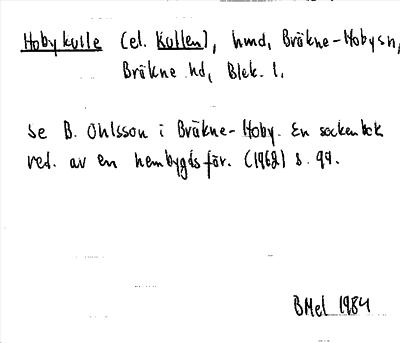 Hobykulle (el. Kullen), hmd, Bräkne-Hobysn,
Bräkne hd, Blek. l.
Se B. Ohlsson i Bräkne-Hoby. En sockenbok
red. av en hembygdsför. (1962) s. 99.
BMel 1984